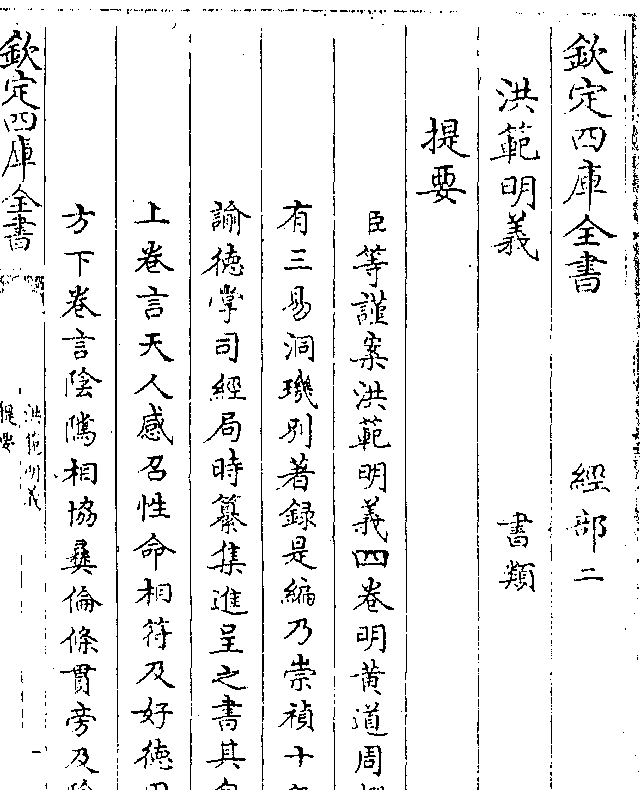 欽定四庫全書 經部二
洪範明義 書類
提要
臣等謹案洪範明義四卷明黄道周
有三易洞璣别著録是編乃崇禎十
諭徳掌司經局時纂集進呈之書其
上卷言天人感召性命相符及好徳
方下卷言陰隲相協彞倫條貫旁及
欽定四庫全書
洪範明義
提要
一